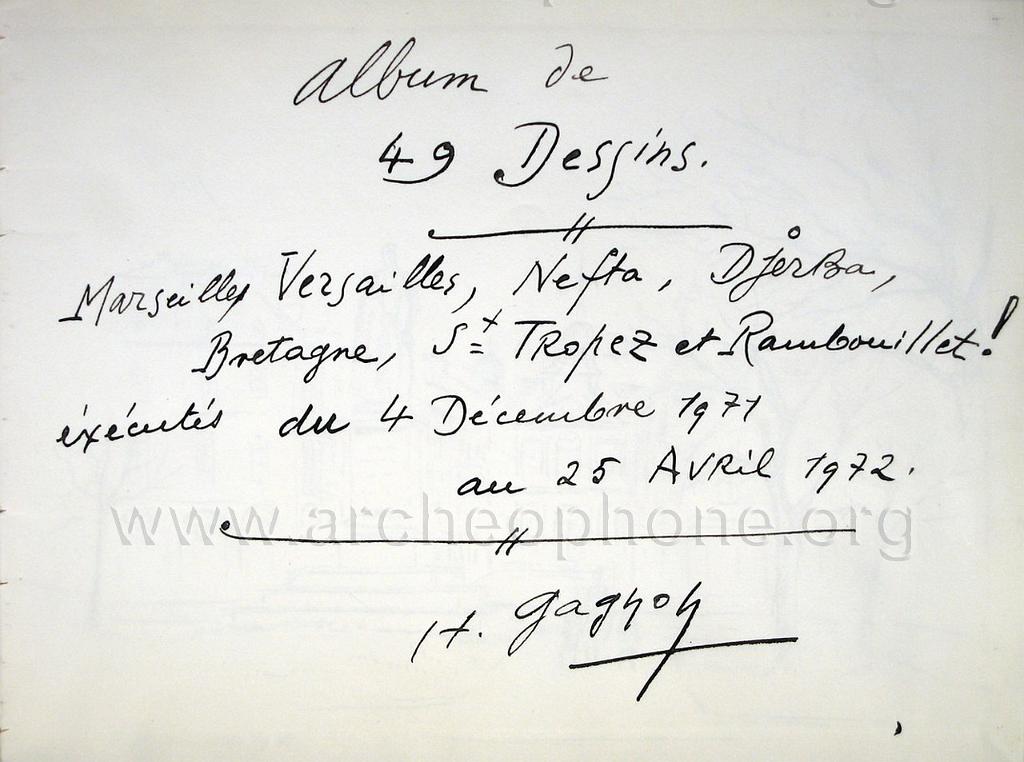 Album de
49 Dessins.
Marseilles Versailles, Nefta, Djerba,
Bretagne, St Tropez et Rambouillet!
éxécutés du 4 Décembre 1971
au 25 Avril 1972.
www.archeophone.org
H. Gagnon